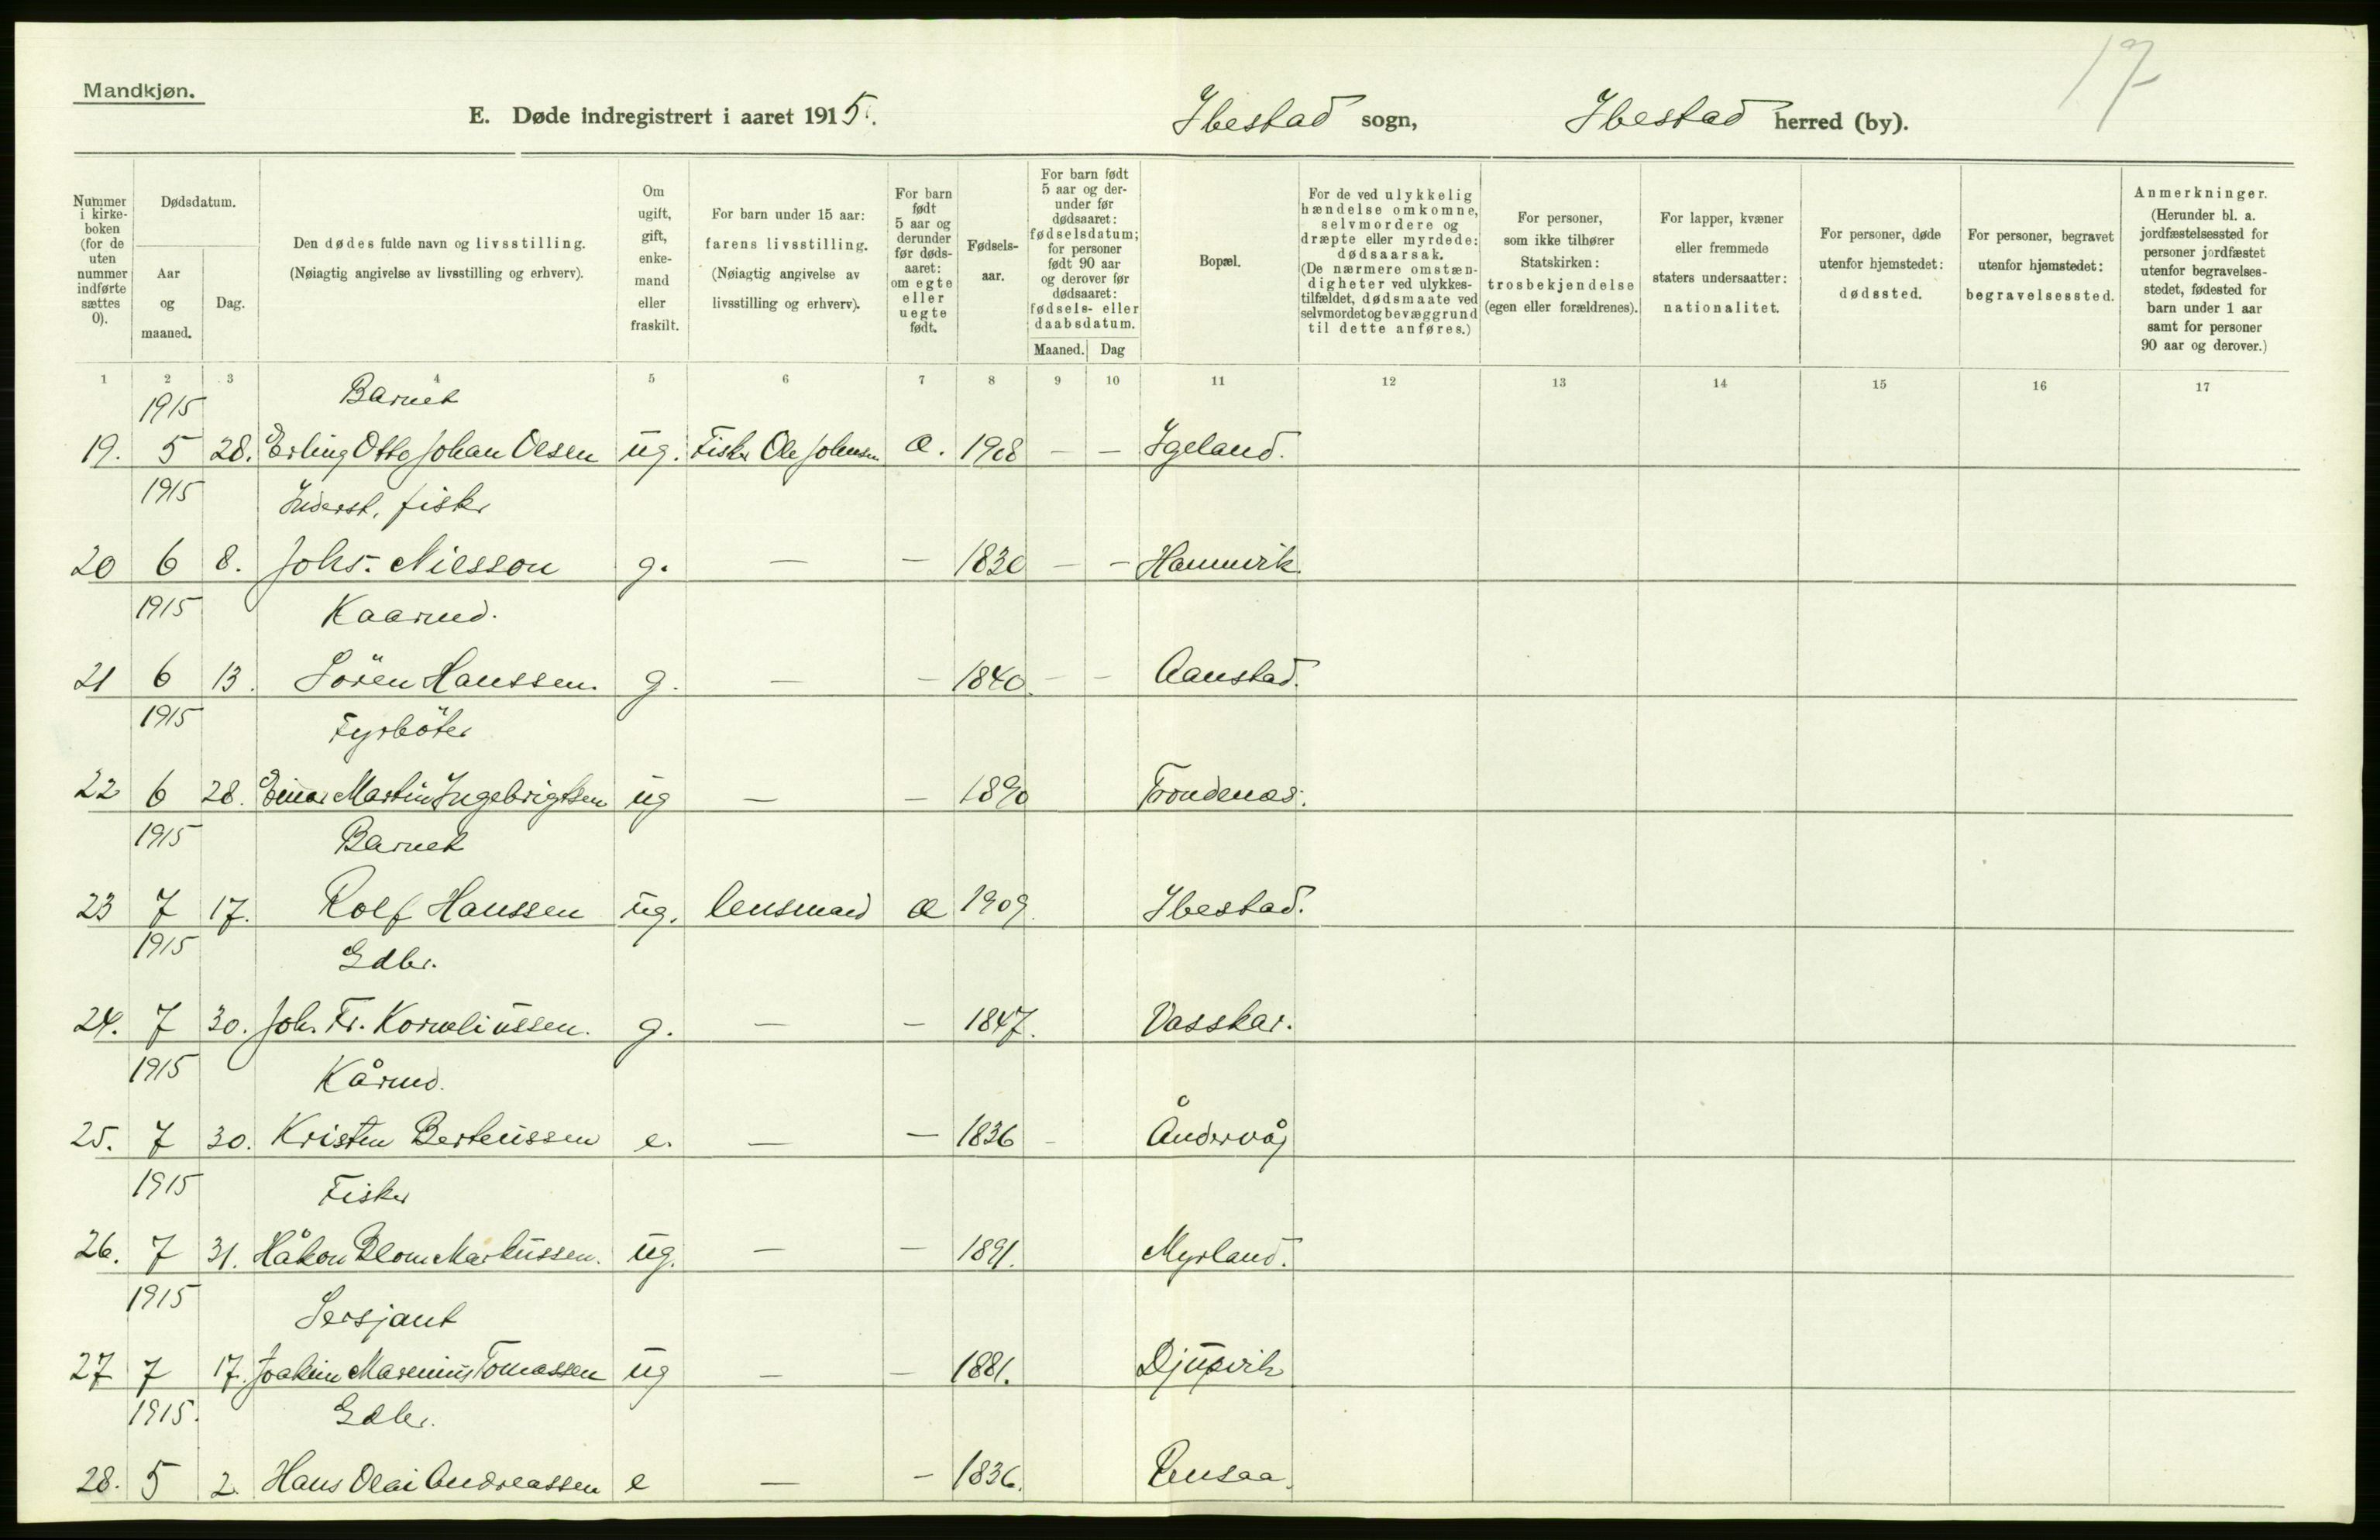 17
Mandkjøn.
E. Døde indregistrert i aaret 1915. Ibestad sogn, Ibestad herred (by).
Nummer i kirkeboken (for de uten nummer indførte sættes 0).
Dødsdatum.
Aar og maaned.
Dag.
Den dødes fulde navn og livsstilling.
(Nøiagtig angivelse av livsstilling og erhverv).
Om ugift, gift, enkemand eller fraskilt.
For barn under 15 aar: farens livsstilling.
(Nøiagtig angivelse av livsstilling og erhverv).
For barn født 5 aar og derunder før dødsaaret: om egte eller uegte født.
Fødselsaar.
For barn født 5 aar og derunder før dødsaaret: fødselsdatum; for personer født 90 aar og derover før dødsaaret: fødsels- eller daabsdatum.
Maaned. Dag
Bopæl.
For de ved ulykkelig hændelse omkomne, selvmordere og dræpte eller myrdede: dødsaarsak. (De nærmere omstændigheter ved ulykkestilfældet, dødsmaate ved selvmordet og bevæggrund til dette anføres.)
For personer, som ikke tilhører Statskirken: trosbekjendelse (egen eller forældrenes).
For lapper, kvæner eller fremmede staters undersaatter: nationalitet.
For personer, døde utenfor hjemstedet: dødssted.
For personer, begravet utenfor hjemstedet: begravelsessted.
Anmerkninger. (Herunder bl. a. jordfæstelsessted for personer jordfæstet utenfor begravelsesstedet, fødested for barn under 1 aar samt for personer 90 aar og derover.)
1 2 3 4 5 6 7 8 9 10 11 12 13 14 15 16 17
1915 Barnet
19. 5 28. Erling Otto Johan Olsen ug. Fisker Ole Johnsen æ. 1908 — — Igeland.
1915 Inderst, fisker
20 6 8. Johs. Nilsson g. — — 1830 — — Hamnvik.
1915 Kaarmd.
21 6 13. Sören Hanssen. g. — — 1840. — — Aanstad.
1915 Fyrböter
22 6 28. Einar Martin Ingebrigtsen ug — — 1890 Trondenæs.
1915 Barnet
23 7 17. Rolf Hanssen ug. lensmand æ 1909. Ibestad.
1915 Gdbr.
24. 7 30. Joh. Fr. Korneliussen. g. — — 1847. Vasskar.
1915 Kårmd.
25. 7 30. Kristen Berteussen e. — — 1836 - Åndervåg
1915 Fisker
26. 7 31. Håkon Blom Markussen. ug. — — 1891. Myrland.
1915 Sersjant
27 7 17. Joakim Marenius Tomassen ug — — 1881. Djupvik
1915. Gdbr.
28. 5 2. Hans Olai Andreassen e — — 1836. Rensaa.